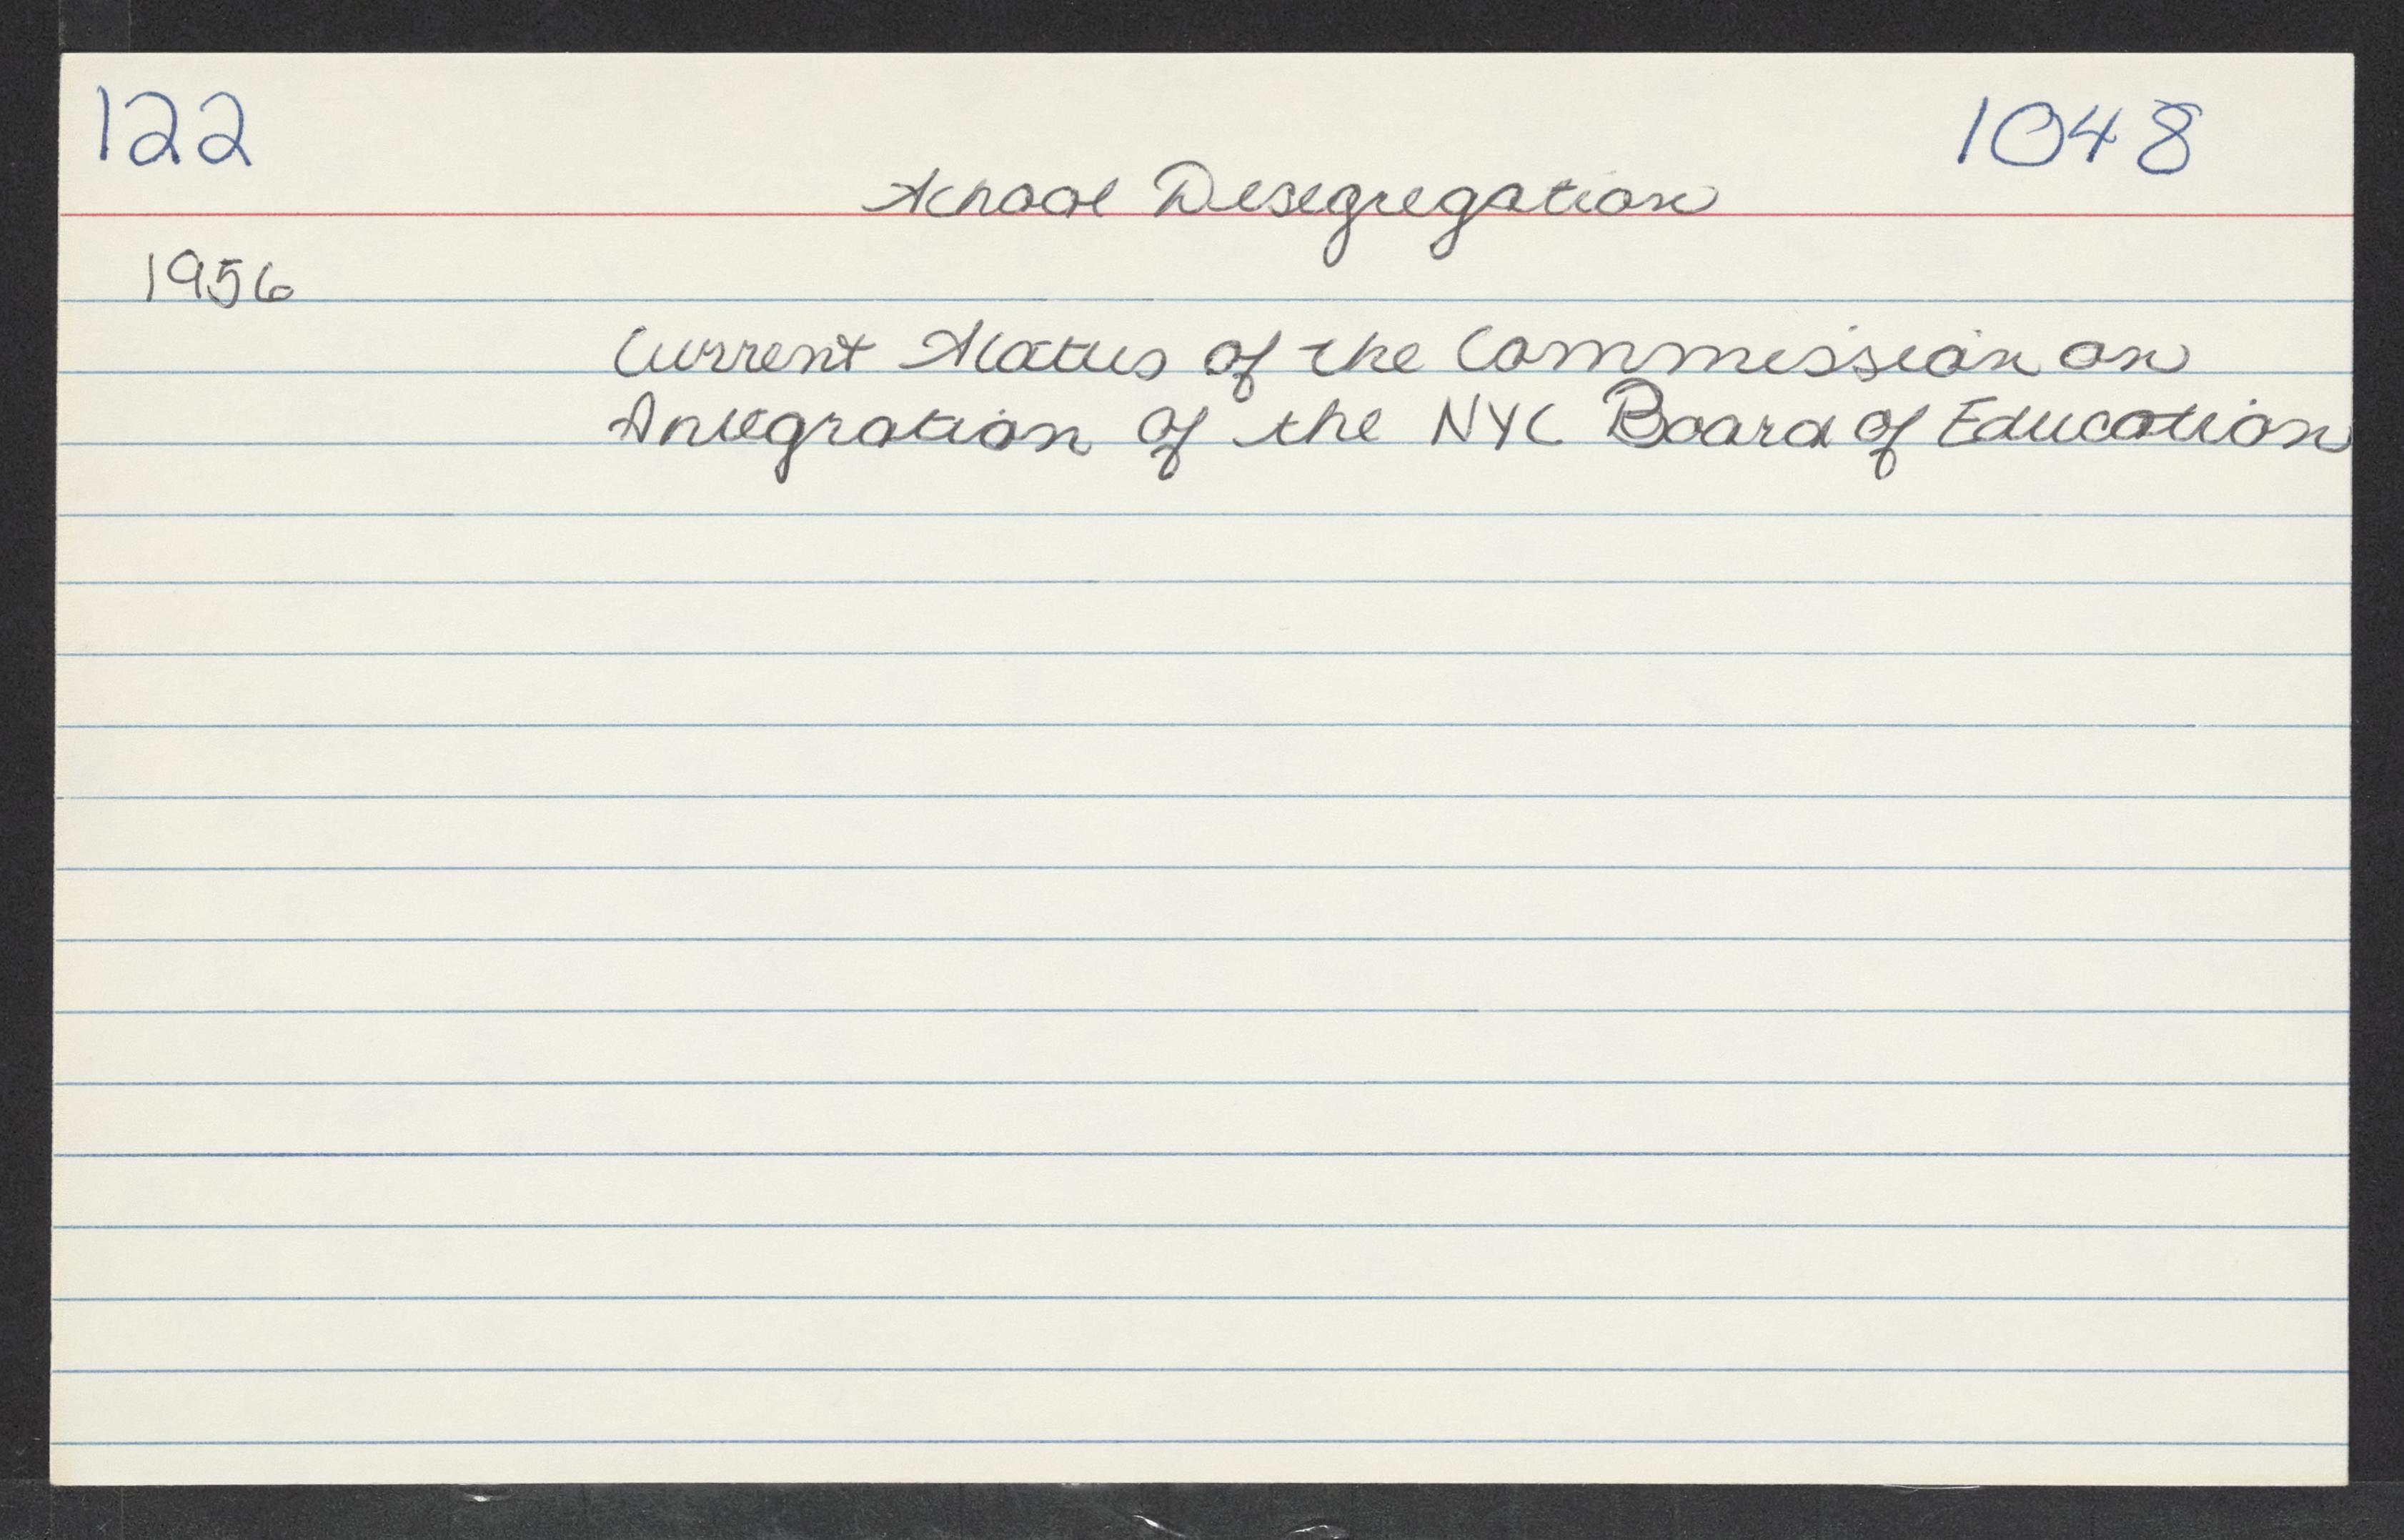 122
1048
School Desegregation
1956
Current Status of the Commission on
Integration of the NYC Board of Education